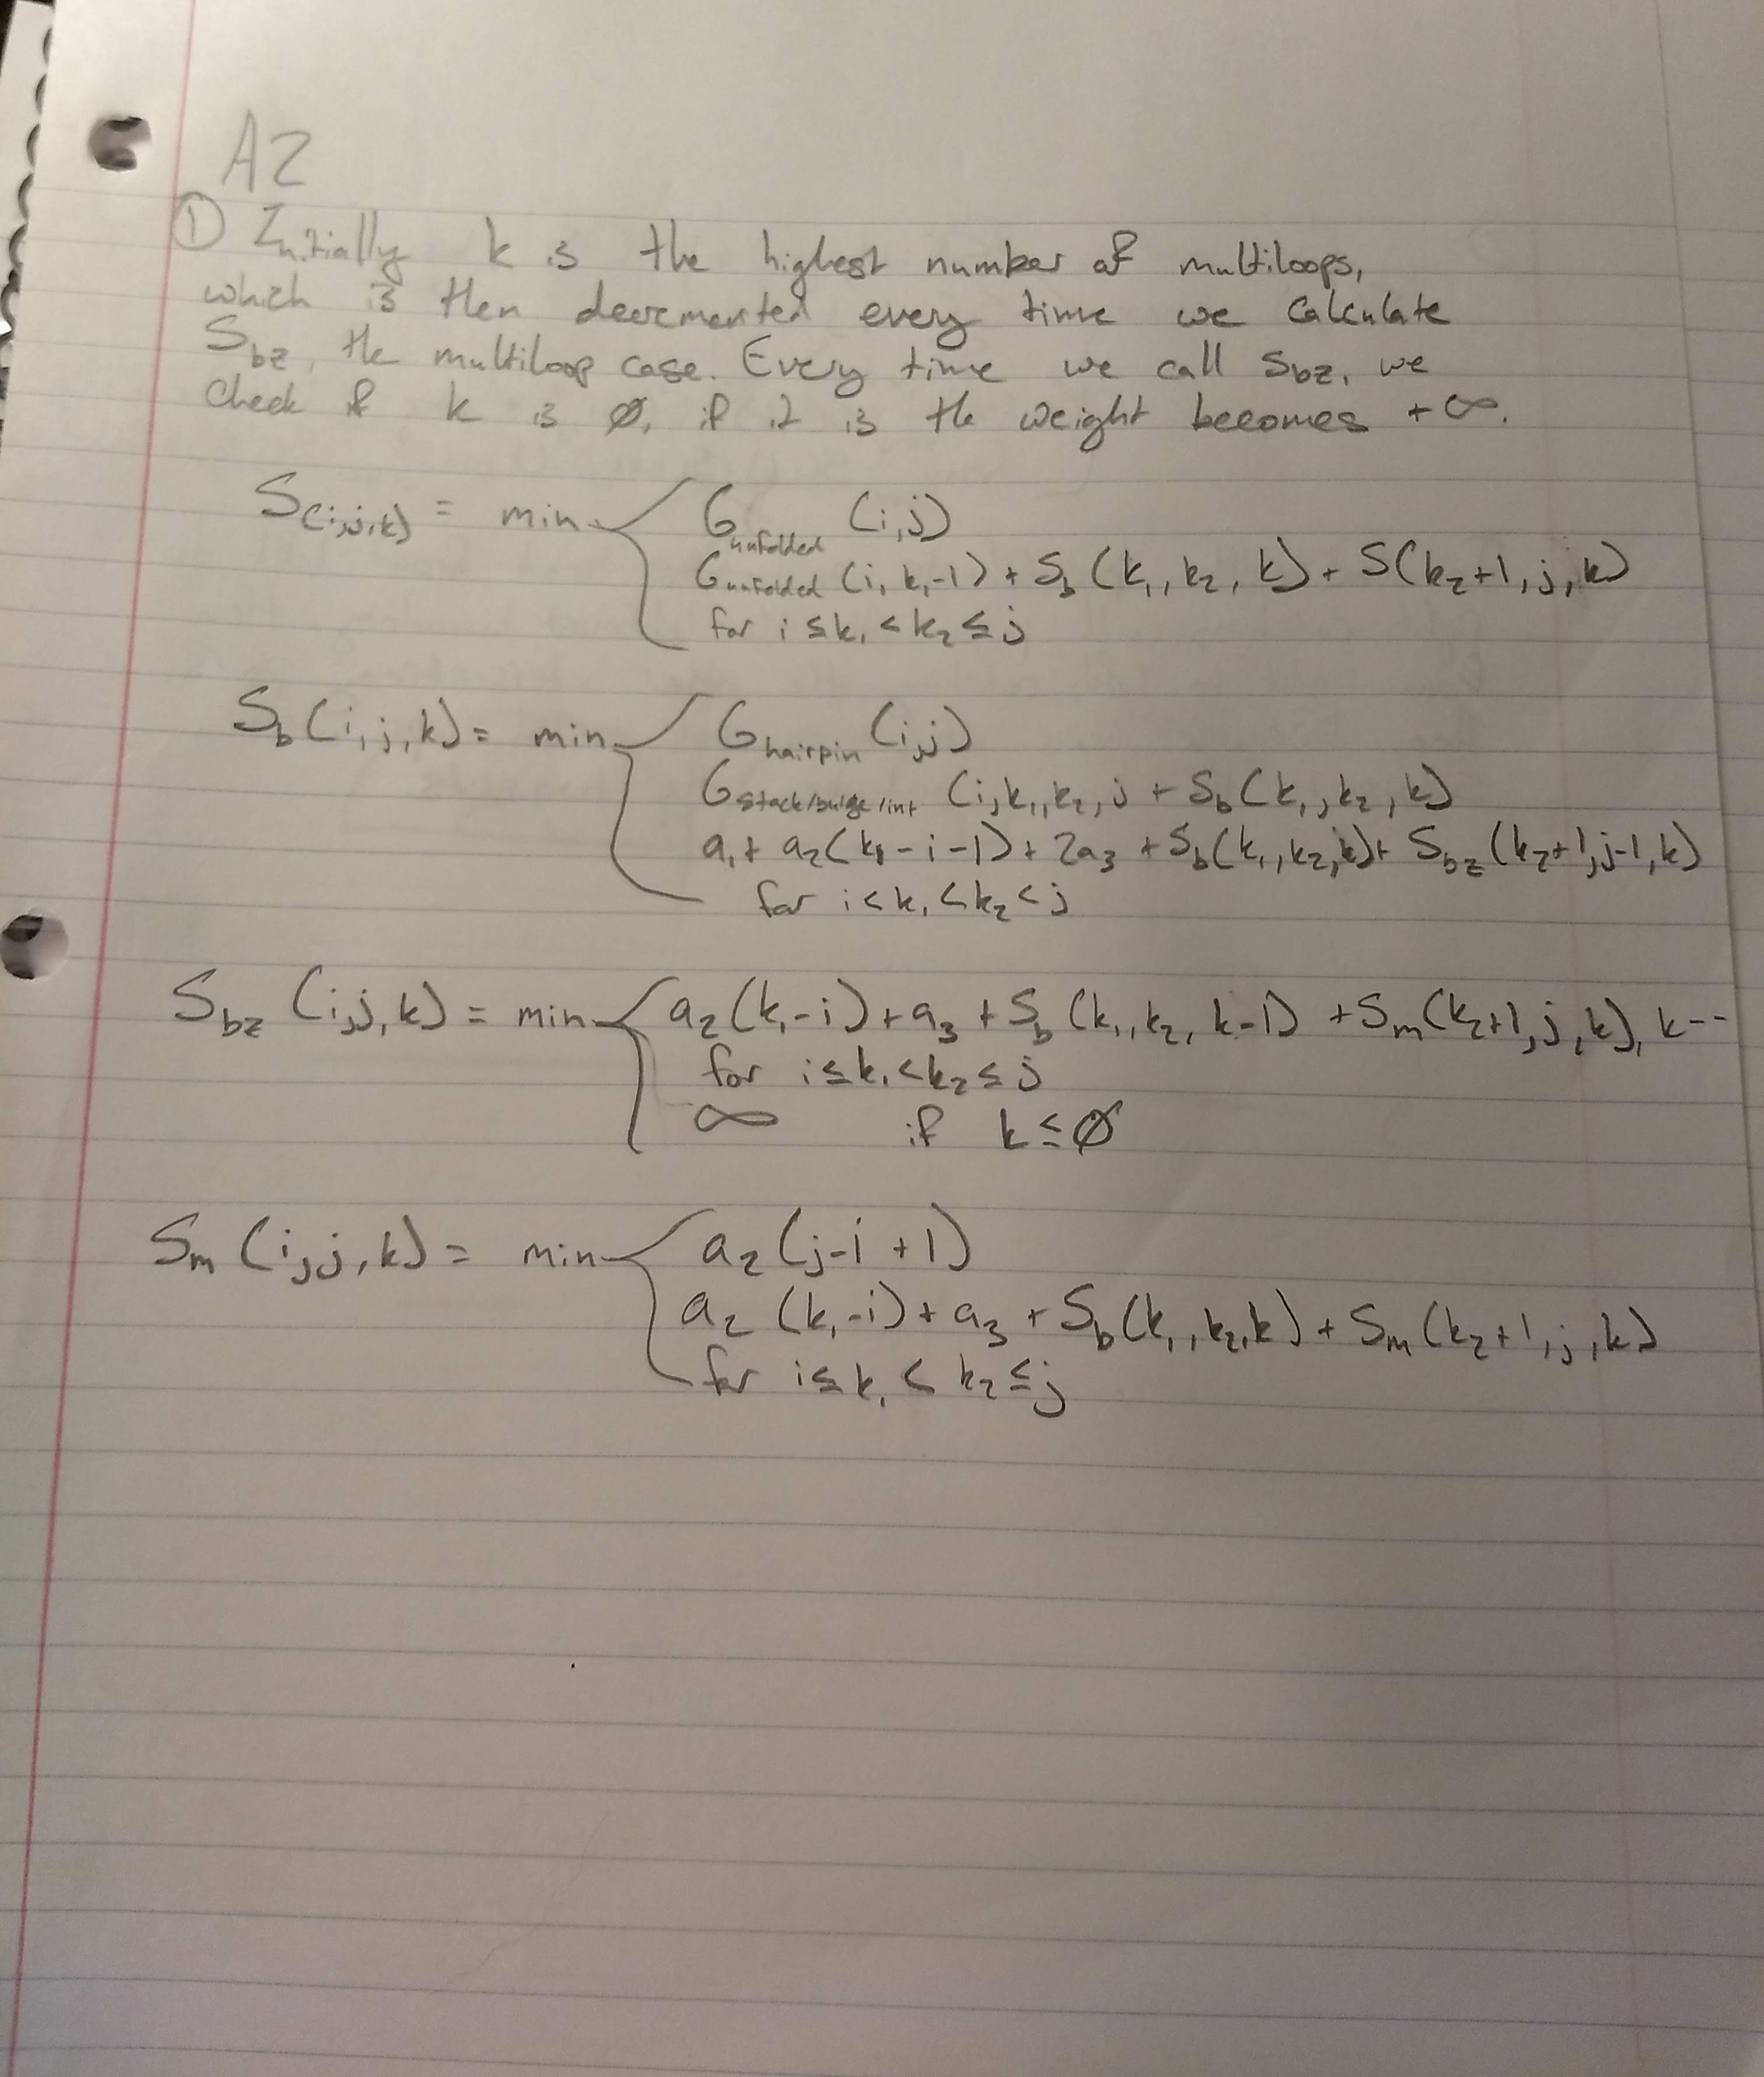 A2
① Initially k is the highest number of multiloops,
which is then decremented every time we calculate
S_bz, the multiloop case. Every time we call S_bz, we
check if k is Ø, if it is the weight becomes +∞.
S(i,j,k) = min { G_unfolded (i,j)
G_unfolded (i, k₁-1) + S_b (k₁, k₂, k) + S(k₂+1, j, k)
for i ≤ k₁ < k₂ ≤ j
S_b (i, j, k) = min { G_hairpin (i,j)
G_stack/bulge/int (i, k₁, k₂, j + S_b (k₁, k₂, k)
a₁ + a₂(k₁-i-1) + 2a₃ + S_b(k₁, k₂, k) + S_bz (k₂+1, j-1, k)
for i < k₁ < k₂ < j
S_bz (i,j,k) = min { a₂(k₁-i) + a₃ + S_b (k₁, k₂, k-1) + S_m(k₂+1, j, k), k--
for i ≤ k₁ < k₂ ≤ j
∞ if k ≤ Ø
S_m (i, j, k) = min { a₂ (j-i+1)
a₂ (k₁-i) + a₃ + S_b(k₁, k₂, k) + S_m (k₂+1, j, k)
for i ≤ k₁ < k₂ ≤ j